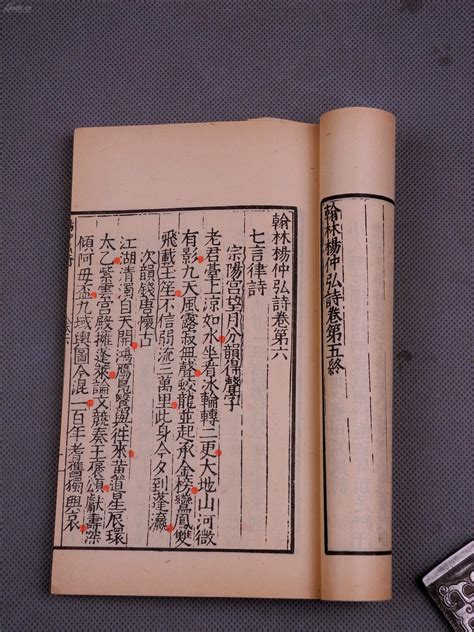 翰林楊仲弘詩卷第五終
翰林楊仲弘詩卷第六
七言律詩
宗陽宮望月分韻得聲字
老君臺上涼如水坐看冰輪轉二更大地山河微
有影九天風露寂無聲蛟龍並起承金榜鸞鳳雙
飛載玉笙不信弱流三萬里此身今夕到蓬瀛
次韻錢唐懷古
江湖清濁自天開鴻鴈鳧鷖與往來黃道星辰環
太乙紫雲宮殿擁蓬萊論文競奏王褒頌獻壽深
傾阿母盃九域輿圖今混一百年老舊獨興哀